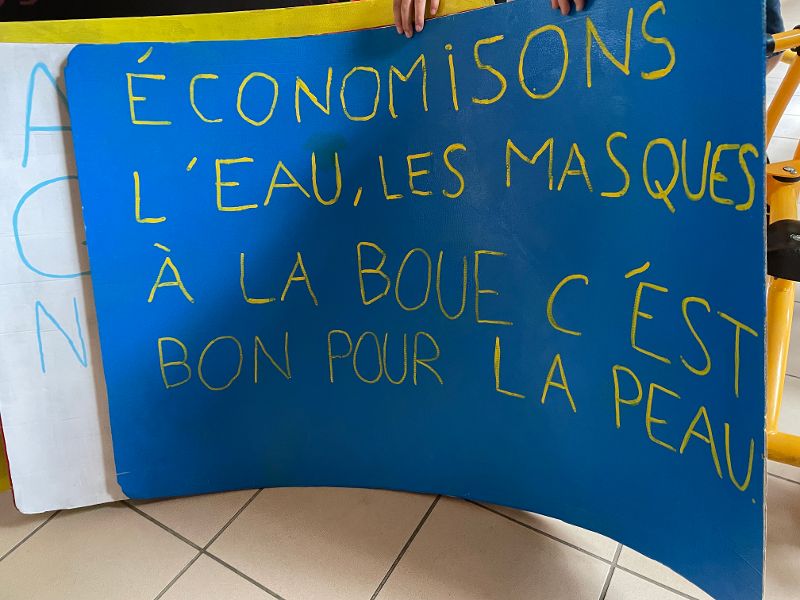 ÉCONOMISONS
L'EAU, LES MASQUES
À LA BOUE C'EST
BON POUR LA PEAU.